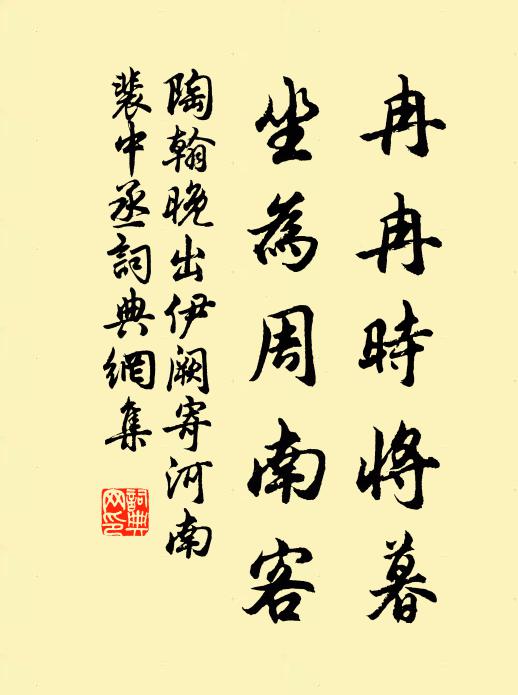 冉冉時將暮
坐為周南客
陶翰晚出伊阙寄河南
裴中丞詞典網集
詞典網印